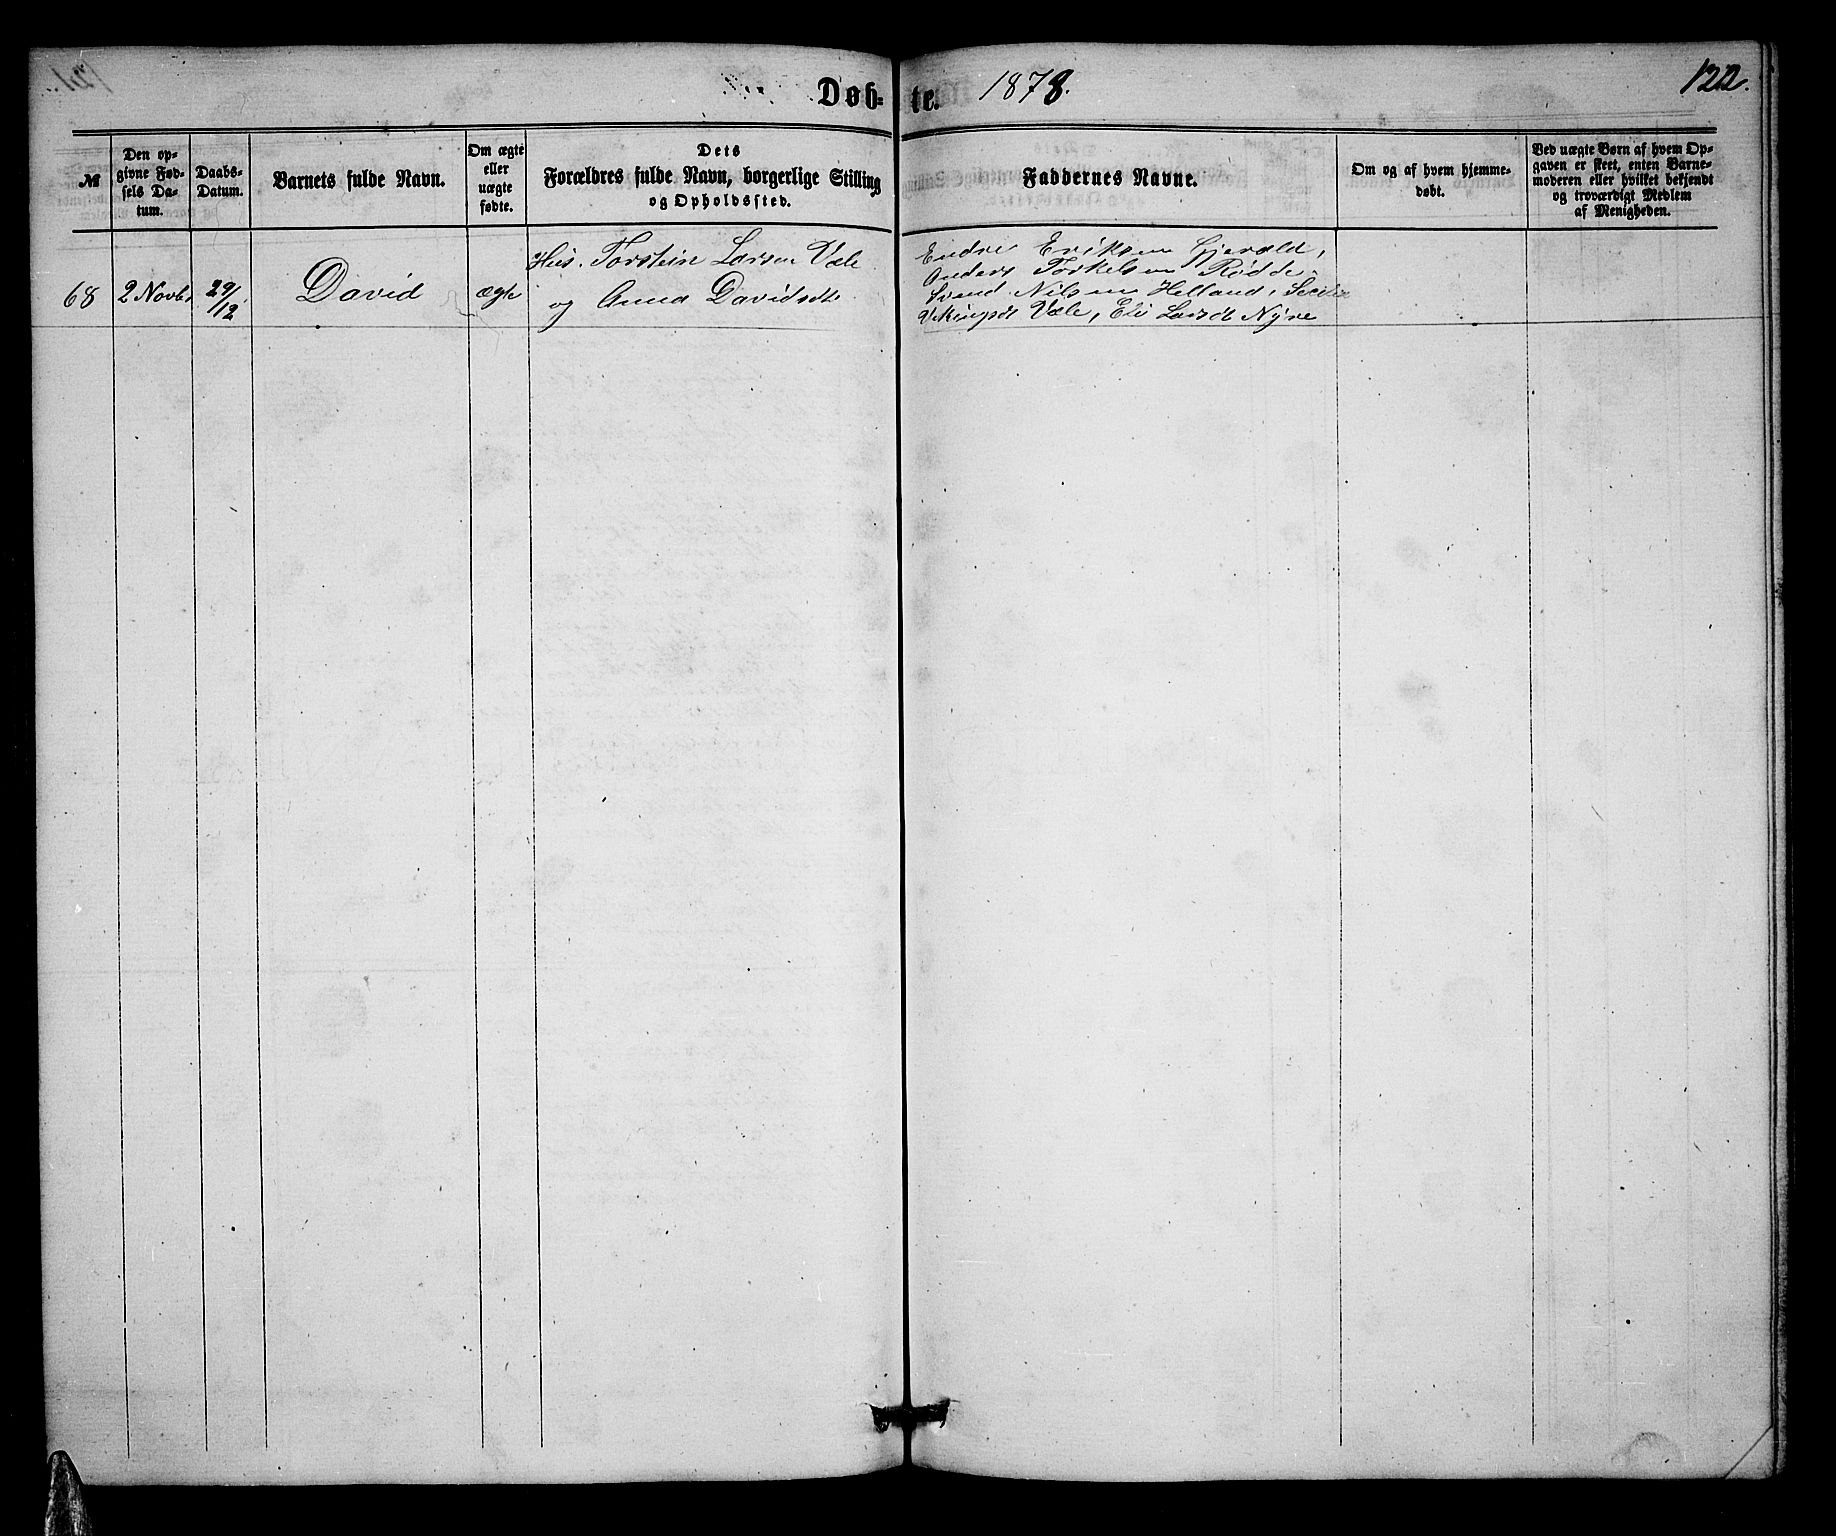 Døb-te. 1878. 122.
№
Den op-
givne Fød-
sels Da-
tum.
Daabs-
Datum.
Barnets fulde Navn.
Om ægte
eller
uægte
fødte.
Dets
Forældres fulde Navn, borgerlige Stilling
og Opholdssted.
Faddernes Navne.
Om og af hvem hjemme-
døbt.
Ved uægte Børn af hvem Op-
gaven er skeet, enten Barne-
moderen eller hvilket bekjendt
og troværdigt Medlem
af Menigheden.
68
2 Novbr
29/12
David
ægte
Hus. Torstein Larsen Væle
og Anna Davidsdtr
Endre Eriksen Gjerald,
Anders Torkelsen Rødde,
Svend Nilsen Helland,
Vikingsdt Væle, Eli Larsdt Nyre